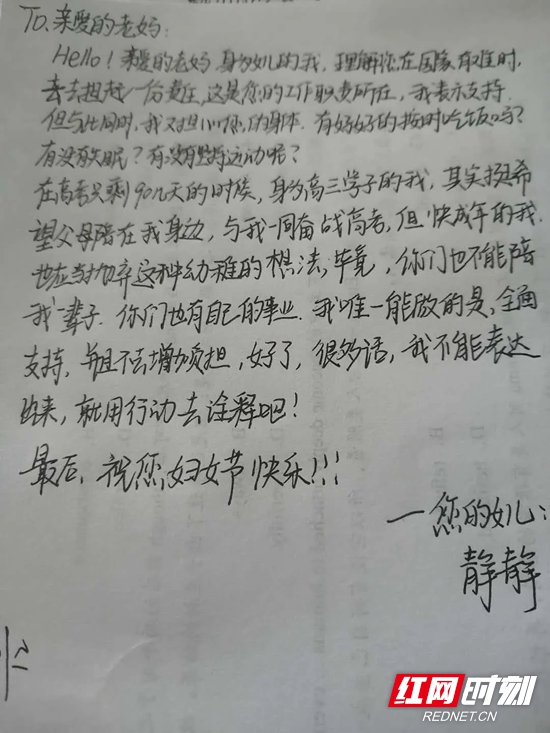 To.亲爱的老妈:
Hello!亲爱的老妈,身为女儿的我,理解您在国家有难时,
去担起一份责任,这是您的工作职责所在,我表示支持.
但与此同时,我又担心您的身体.有好好的按时吃饭吗?
有没有失眠?有没有坚持运动呢?
在高考只剩90几天的时候,身为高三学子的我,其实挺希
望父母陪在我身边,与我一同奋战高考,但快成年的我.
也应当抛弃这种幼稚的想法,毕竟,你们也不能陪
我一辈子.你们也有自己的事业.我唯一能做的是,全面
支持,并且不去增加负担,好了,很多话,我不能表达
出来,就用行动去诠释吧!
最后,祝您妇女节快乐!!!
—您的女儿:
静静
21
红网时刻
REDNET.CN